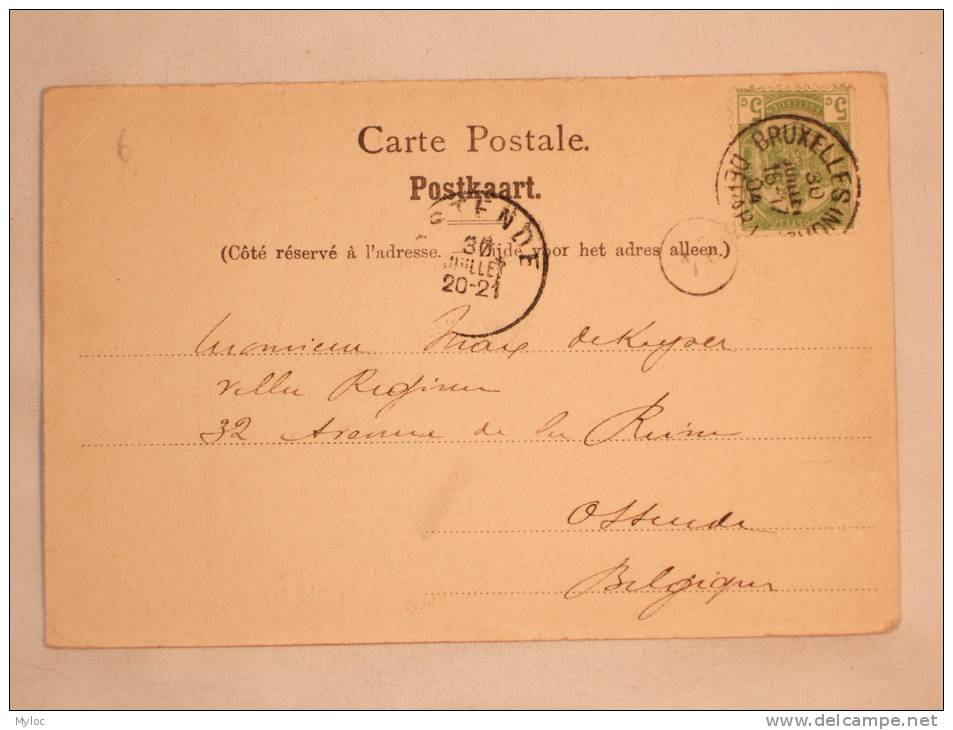 6
Carte Postale.
Postkaart.
(Côté réservé à l'adresse. — Zijde voor het adres alleen.)
5 c
5 c
BRUXELLES
DEPART
30
JUIL
16-17
04
OSTENDE
30
JUILLET
20-21
Monsieur Max deKeyser
Villa Regina
32 Avenue de la Reine
Ostende
Belgique
Myloc
delcampe.net